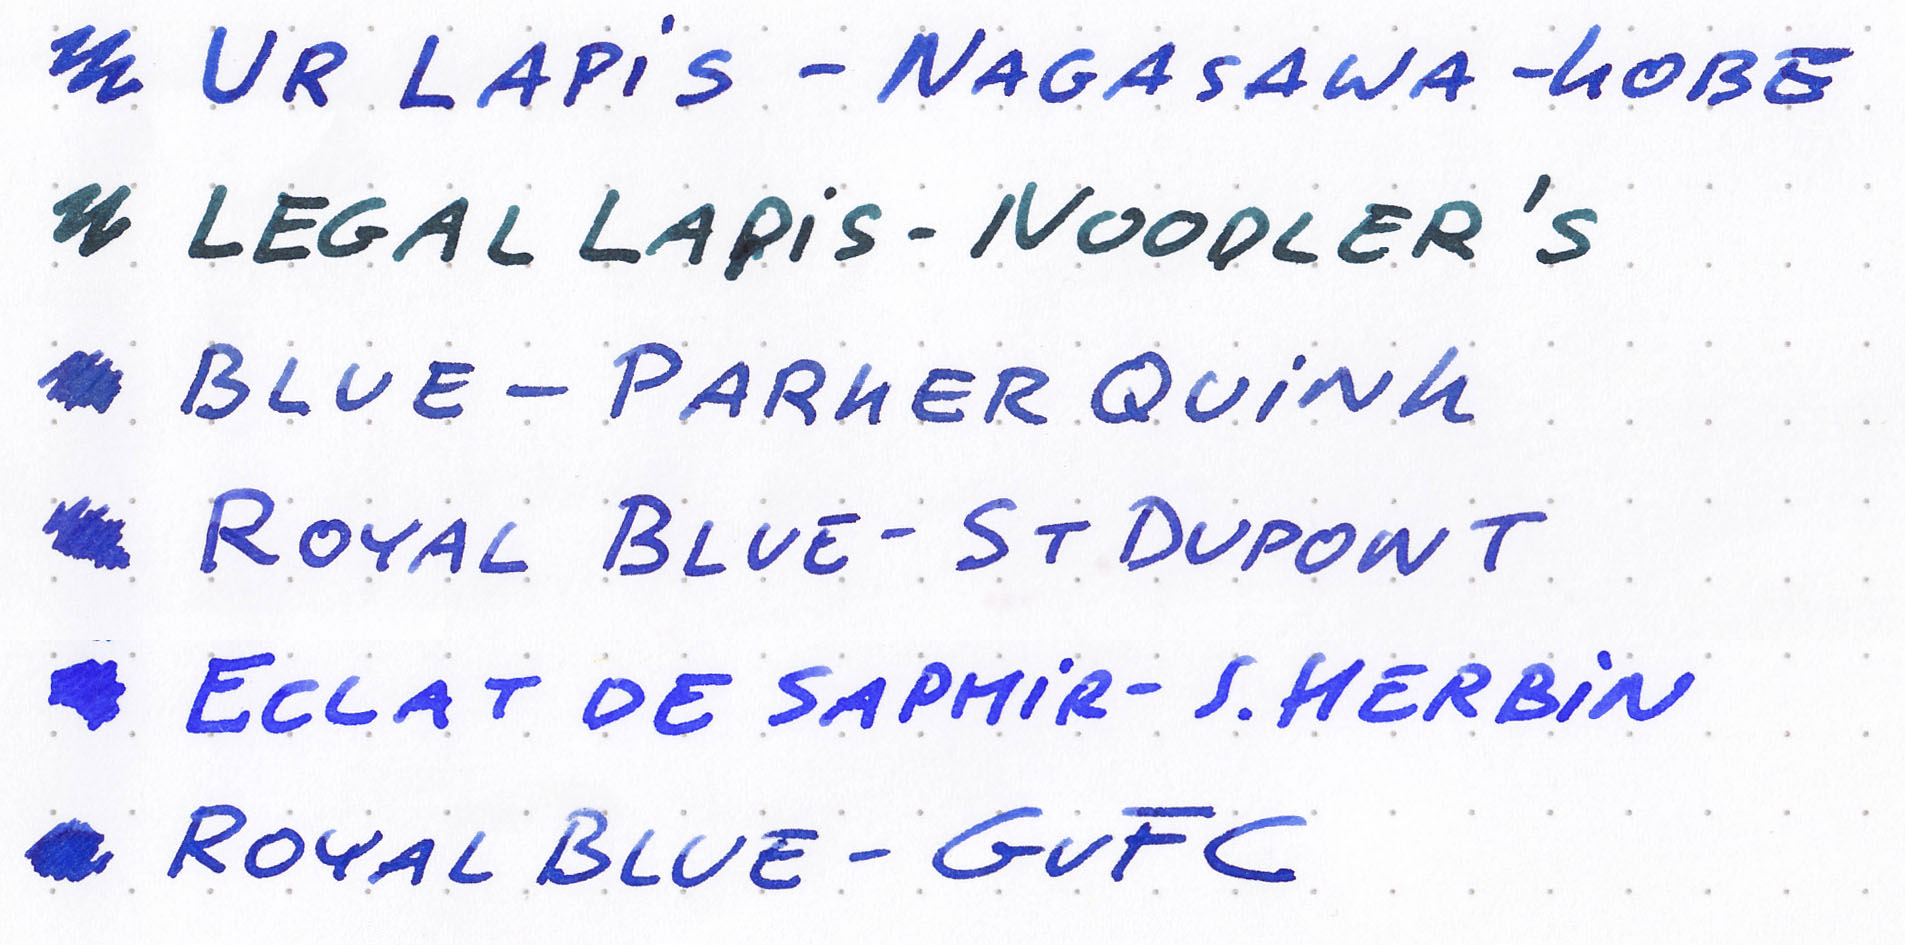 UR LAPiS - NAGASAWA - KOBE
LEGAL LAPiS - NOODLER'S
BLUE - PARKER QUiNK
ROYAL BLUE - ST DUPONT
ECLAT DE SAPHiR - J. HERBiN
ROYAL BLUE - GvFC